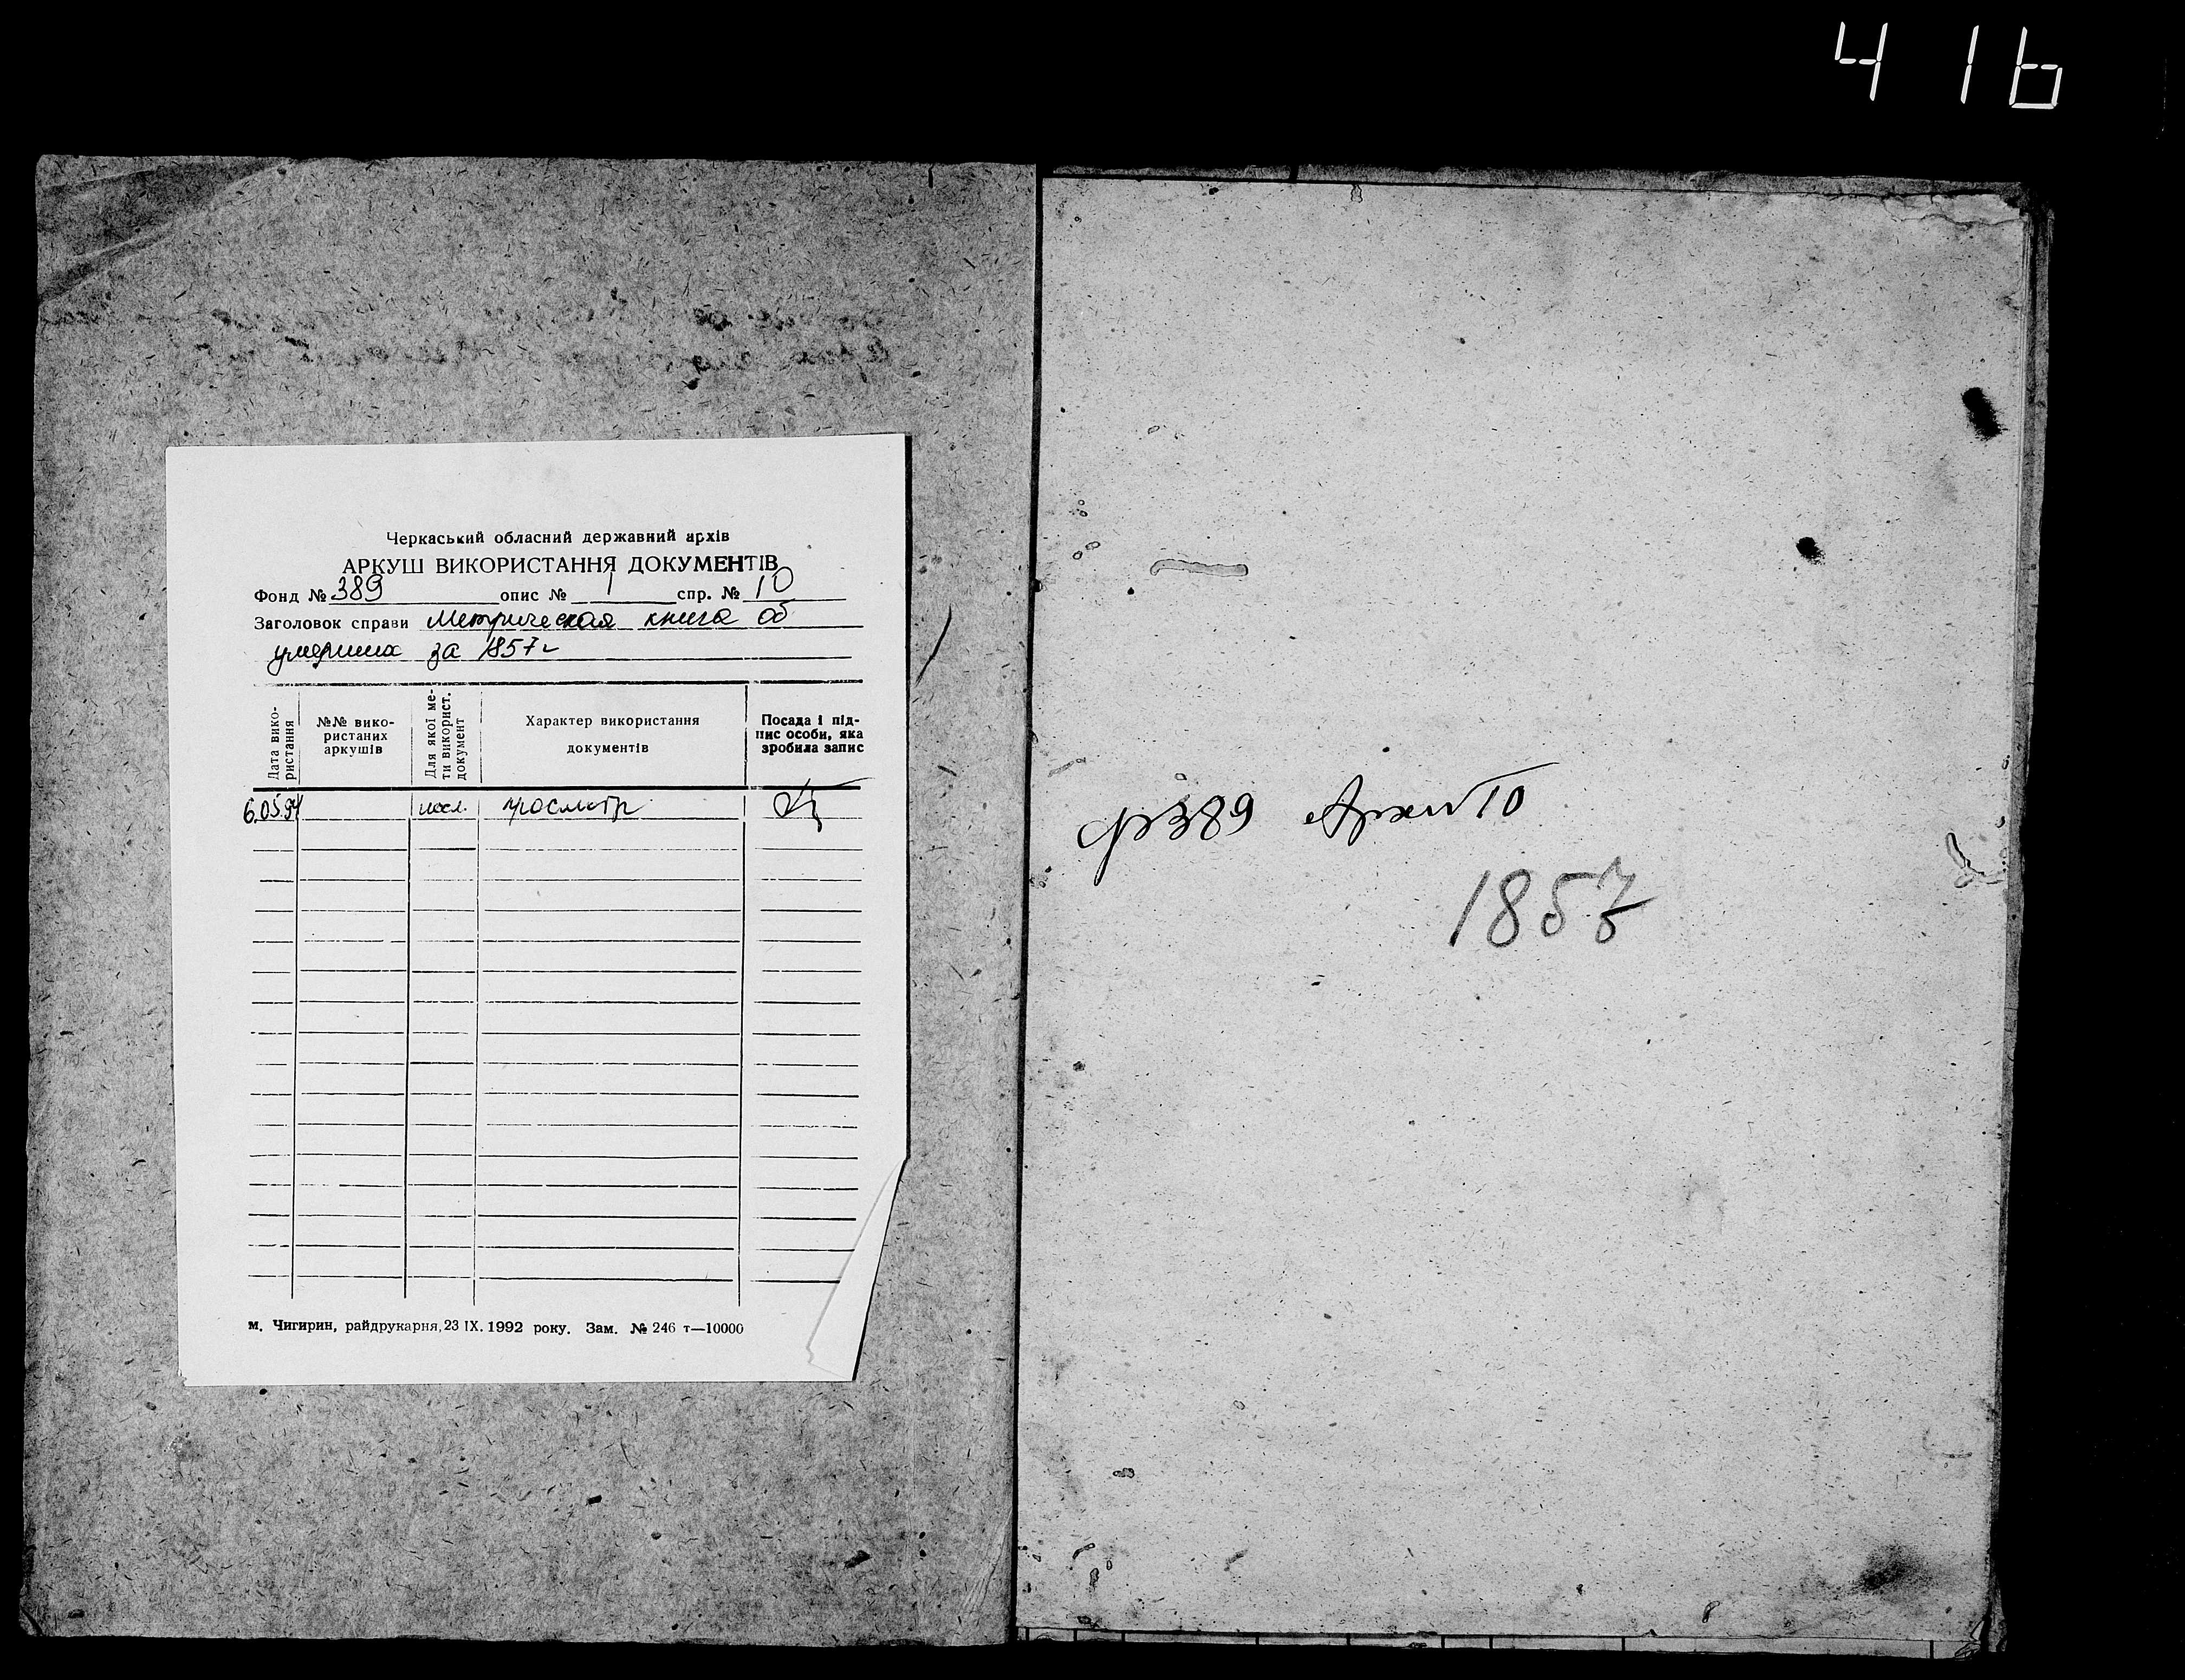 416
Черкаський обласний державний архів
АРКУШ ВИКОРИСТАННЯ ДОКУМЕНТІВ
Фонд № 389 опис № 1 спр. № 10
Заголовок справи Метрическая книга об
умерших за 1857г
Дата вико-
ристання
№№ вико-
ристаних
аркушів
Для якої ме-
ти використ.
документ
Характер використання
документів
Посада і під-
пис особи, яка
зробила запис
6.05.94 просмотр
м. Чигирин, райдрукарня, 23 IX. 1992 року. Зам. № 246 т—10000
ф389 10
1857